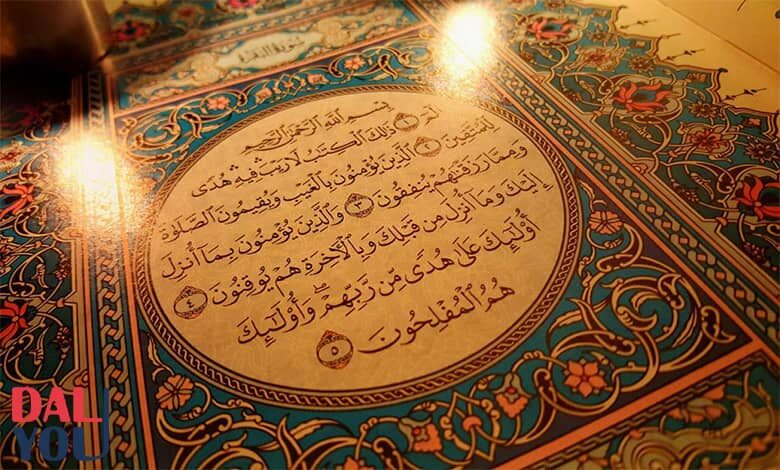 سُورَةُ البَقَرَةِ
بِسْمِ اللَّهِ الرَّحْمَٰنِ الرَّحِيمِ
الٓمٓ ١ ذَٰلِكَ الْكِتَٰبُ لَا رَيْبَ فِيهِ هُدًى
لِّلْمُتَّقِينَ ٢ الَّذِينَ يُؤْمِنُونَ بِالْغَيْبِ وَيُقِيمُونَ الصَّلَوٰةَ
وَمِمَّا رَزَقْنَٰهُمْ يُنفِقُونَ ٣ وَالَّذِينَ يُؤْمِنُونَ بِمَآ أُنزِلَ
إِلَيْكَ وَمَآ أُنزِلَ مِن قَبْلِكَ وَبِالْآخِرَةِ هُمْ يُوقِنُونَ ٤
أُولَٰٓئِكَ عَلَىٰ هُدًى مِّن رَّبِّهِمْ ۖ وَأُولَٰٓئِكَ
هُمُ الْمُفْلِحُونَ ٥
DAL
YOU